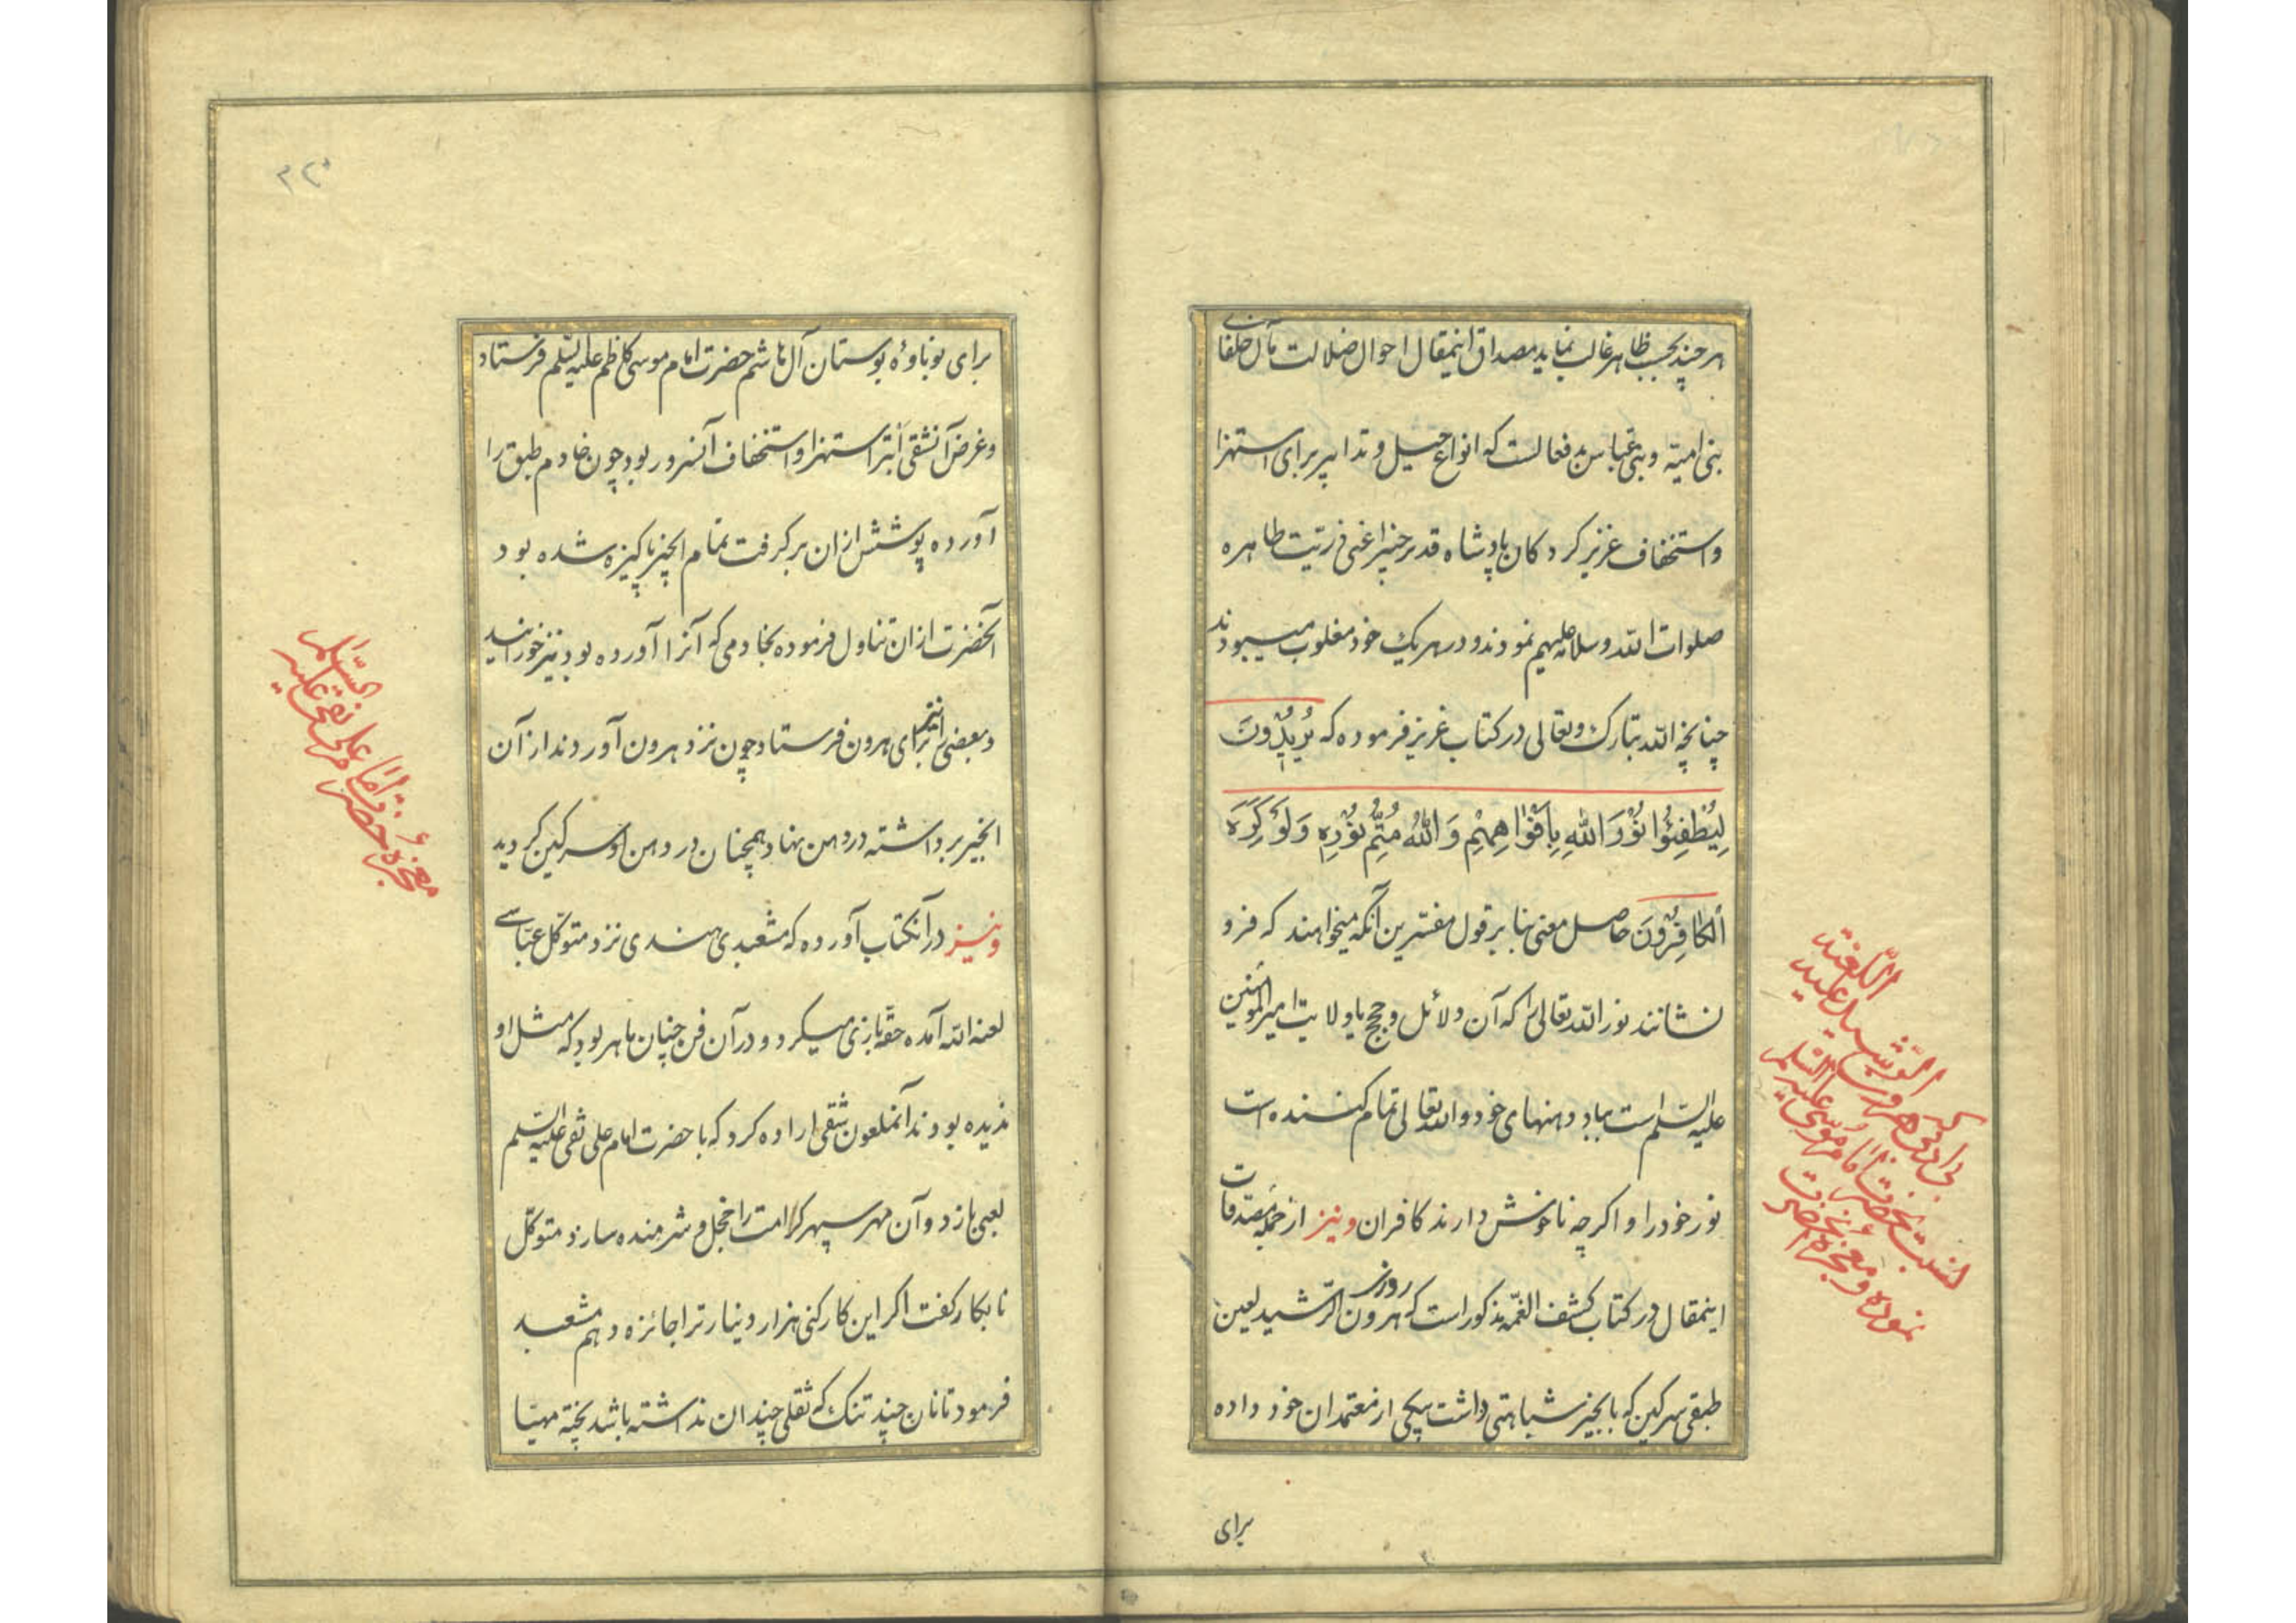 هر چند بحسب ظاهر غالب نماید مصداق اینمقال احوال ضلالت مآل خلفای
بنی امیّه و بنی عبّاس بد فعالست که انواع حیل و تدابیر برای استهزا
و استخفاف عزیز کردکان پادشاه قدیر خبیر اعنی ذریّت طاهره
صلوات الله و سلامه علیهم نمودند و در هر یک خود مغلوب میبودند
چنانچه الله تبارک و تعالی در کتاب عزیز فرموده که یُرِیدُونَ
لِیُطْفِئُوا نُوْرَ اللهِ بِاَفْوٰاهِهِمْ وَ اللهُ مُتِمُّ نُوْرِهِ وَلَوْ کَرِهَ
الْکٰافِرُونَ حاصل معنی بنا بر قول مفسّرین آنکه میخواهند که فرو
نشانند نور الله تعالی را که آن دلائل و حجج یا ولایت امیر المؤمنین
علیه السلم است بباد دهنهای خود و الله تعالی تمام کننده است
نور خود را و اکرچه ناخوش دارند کافران و نیز از جمله مصدّقات
اینمقال در کتاب کشف الغمّه مذکور است که روزی هرون الرّشید لعین
طبقی سرکین که بانجیر شباهتی داشت بیکی از معتمدان خود داده
برای
اللّعنه
الرّشید علیه
بی ادبی که هرون
نسبت بحضرت امام موسی علیه السلم
نموده و معجزه آنحضرت
۳۲۰
برای نوباوهٔ بوستان آل هاشم حضرت امام موسی کاظم علیه السّلم فرستاد
و غرض آنشقی اَبتر استهزا و استخفاف آنسرور بود چون خادم طبق را
آورده پوشش ازان برکرفت تمام انجیر پاکیزه شده بود
آنحضرت ازان تناول فرموده بخادمی که آنرا آورده بود نیز خورانید
و بعضی را نیز برای هرون فرستاد چون نزد هرون آوردند از آن
انجیر برداشته در دهن نهاد همچنان در دهن او سرکین کردید
و نیز در آنکتاب آورده که مشعبدی هندی نزد متوکّل عبّاسی
لعنه الله آمده حقّه بازی میکرد و در آن فن چنان ماهر بود که مثل او
ندیده بودند آنملعون شقی اراده کرد که با حضرت امام علی نقی علیه السّلم
لعبی بازد و آن مهر سپهر کرامت را خجل و شرمنده سازد متوکّل
نابکار کفت اکر این کار کنی هزار دینار ترا جائزه دهم مشعبد
فرمود تا نان چند تنک که ثقلی چندان نداشته باشد پخته مهیّا
معجزهٔ حضرت امام علی نقی علیه السّلم